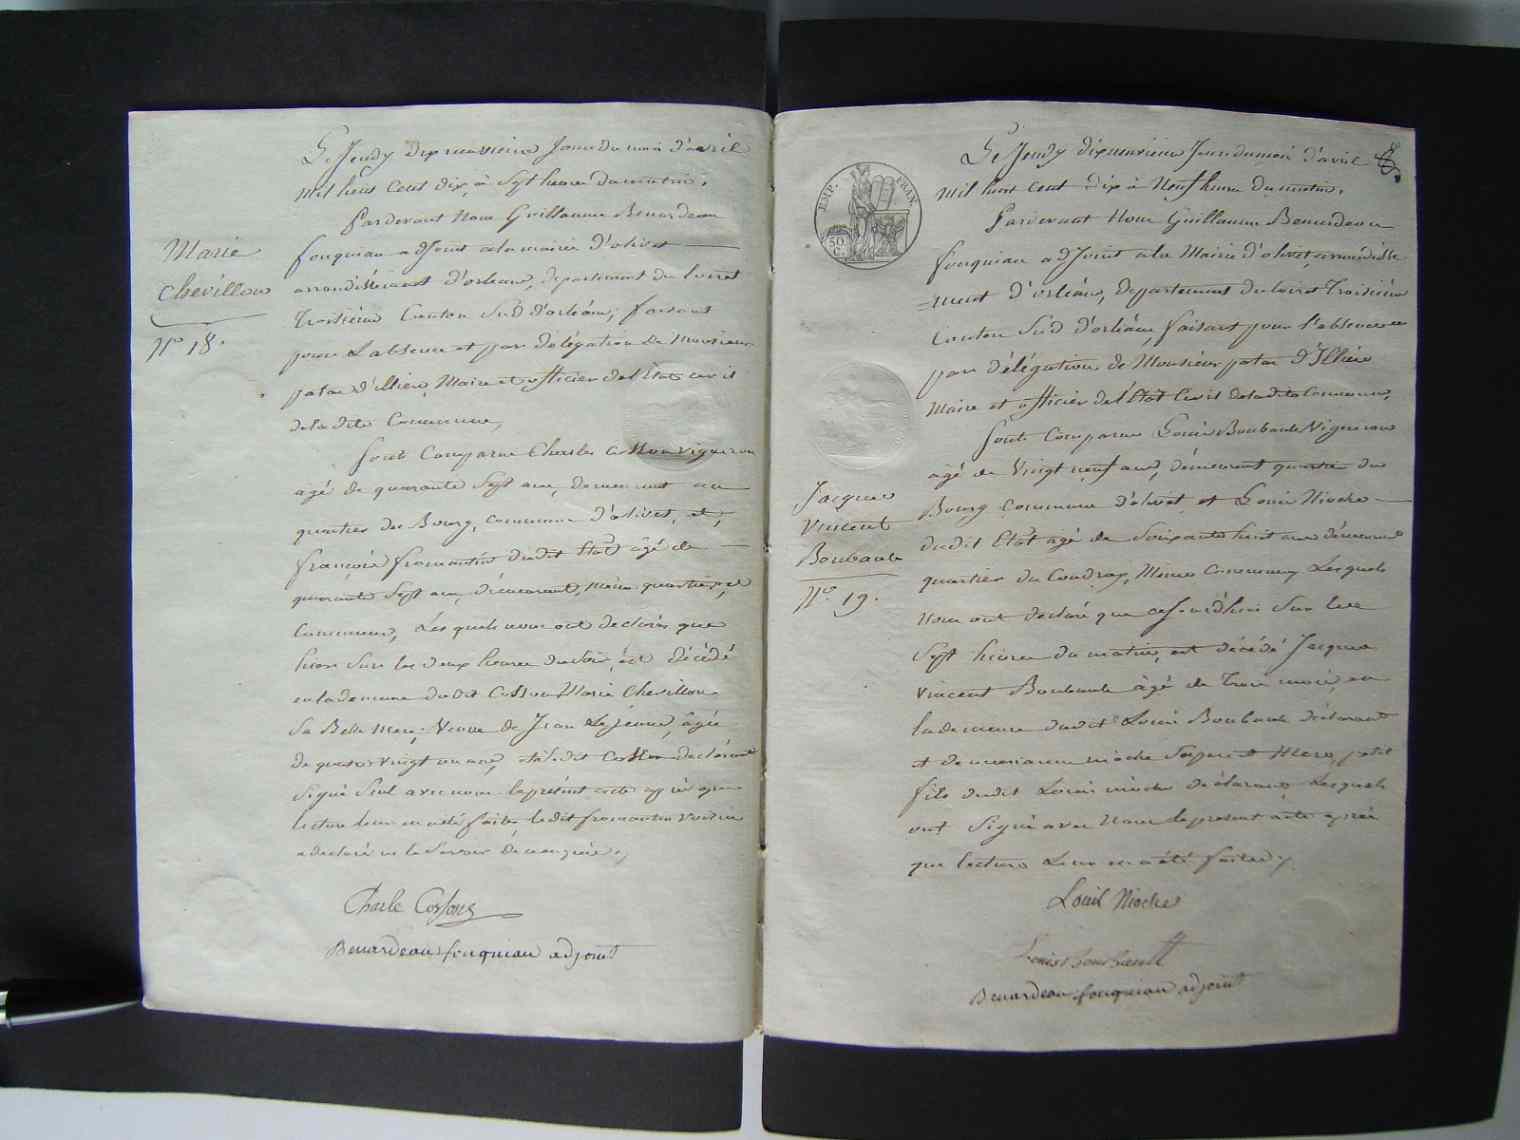 Le Jeudy dix neuvieme Jour du mois d'avril
mil huit cent dix, à Sept heures du matin.
Pardevant Nous Guillaume Benardeau
fouquiau adjoint à la mairie d'olivet
arrondissement d'orléans, departement du loiret
troisième Canton Sud d'orléans, faisant
pour l'absence et par délégation de Monsieur
patas d'illiers, Maire et officier de l'Etat civil
de la dite Commune,
Marie
Chevillon
N° 18.
Sont Comparus Charles Cosson vigneron
âgé de quarante Sept ans, demeurant au
quartier du Bourg, commune d'olivet, et,
françois fromentin dudit Etat âgé de
quarante Sept ans, demeurant, même quartier, et
Commune, Lesquels nous ont declarés que
hier Sur les deux heures du Soir, est décédé
en la demeure dudit Cosson Marie Chevillon
Sa Belle mere, Veuve de Jean Lejeune, âgée
de quatre vingt un ans, et ledit Cosson declarant
Signé Seul avec nous le présent acte après que
lecture leur en a été faite, ledit fromentin
a declaré ne le Savoir de ce enquis.
Charle Cossong
Benardeau fouquiau adjoint
EMP. FRAN.
50
C.
Le Jeudy dix neuvieme Jour du mois d'avril
mil huit cent dix à Neuf heures du matin.
Pardevant Nous Guillaume Benardeau
fouquiau adjoint à la Mairie d'olivet, arrondisse
=ment d'orléans, departement du loiret troisième
Canton Sud d'orléans, faisant pour l'absence et
par délégation de Monsieur patas d'Illiers
Maire et officier de l'Etat Civil de la dite Commune,
Jacques
Vincent
Boubault
N° 19.
Sont Comparus Louis Boubault Vigneron
âgé de Vingt neuf ans, demeurant quartier du
Bourg Commune d'olivet, et Louis Nioche
dudit Etat âgé de Soixante huit ans demeurant
quartier du Coudray, Même Commune, Lesquels
nous ont declaré que ce jourd'hui Sur les
Sept heures du matin, est décédé Jacques
Vincent Boubault âgé de trois mois, en
la demeure dudit Louis Boubault déclarant
et de nioche Ses pere et Mere, petit
fils dudit Louis nioche déclarant, Lesquels
ont Signé avec Nous le present acte après
que lecture Leur en a été faite.
Louis Nioche
Louis Boubault
Benardeau fouquiau adjoint